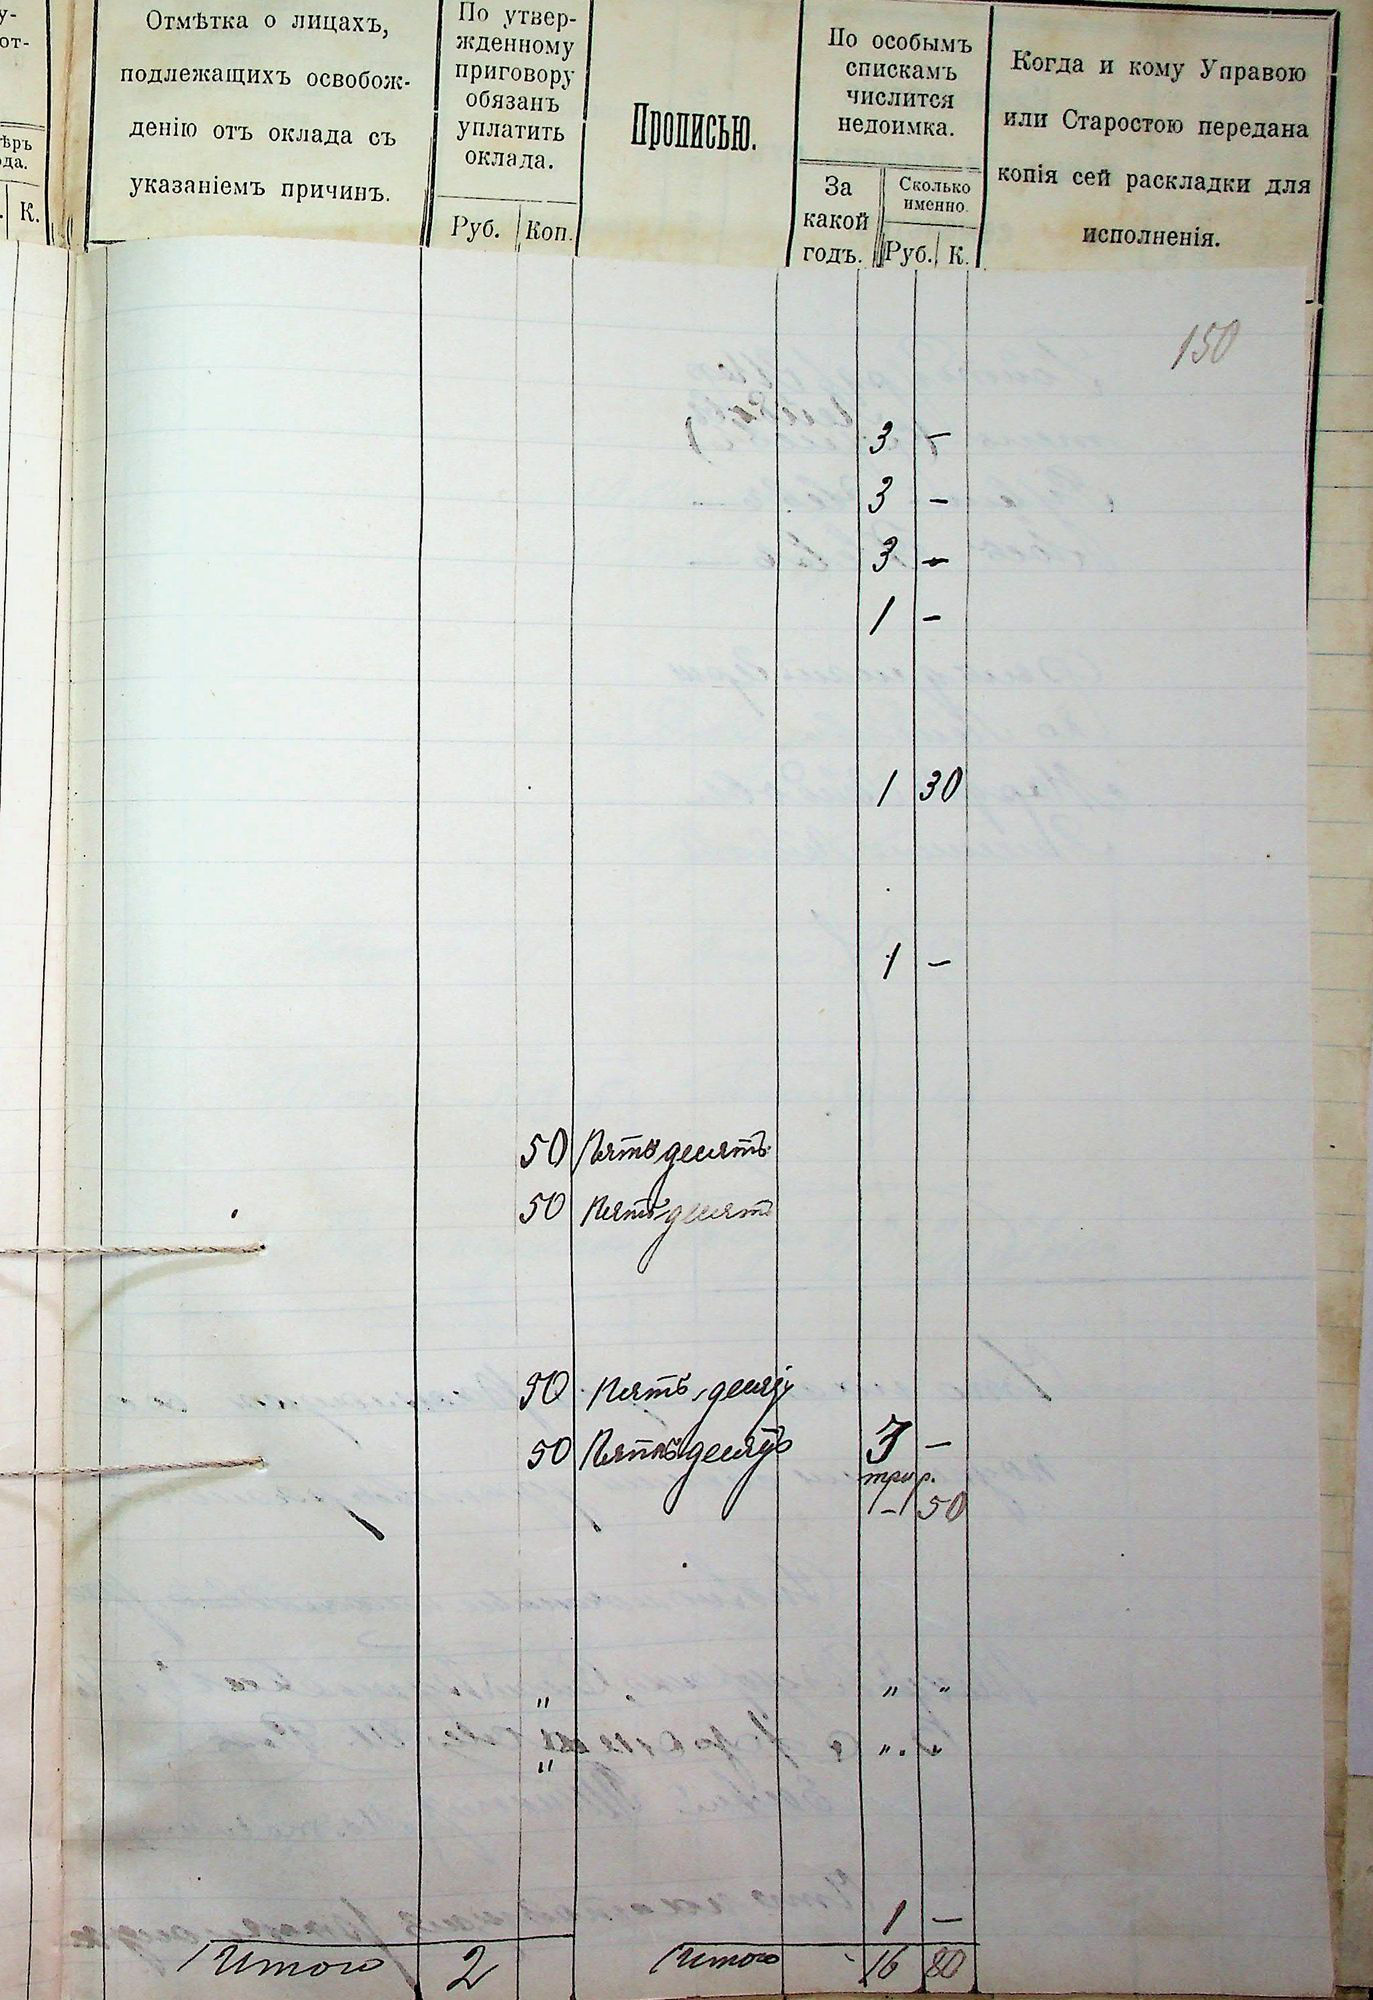 у-
от-
ѣръ
да.
К.
Отмѣтка о лицахъ,
подлежащихъ освобож-
денію отъ оклада съ
указаніемъ причинъ.
По утвер-
жденному
приговору
обязанъ
уплатить
оклада.
Руб. Коп.
Прописью.
По особымъ
спискамъ
числится
недоимка.
За
какой
годъ.
Сколько
именно.
Руб. К.
Когда и кому Управою
или Старостою передана
копія сей раскладки для
исполненія.
150
3 -
3 -
3 -
1 -
1 30
1 -
50 Пятьдесятъ
50 Пятьдесят
50 Пять десят
50 Пятьдесятъ 3 -
три р.
1 - 50
" " "
" " "
1 -
Итого 2 Итого 16 80